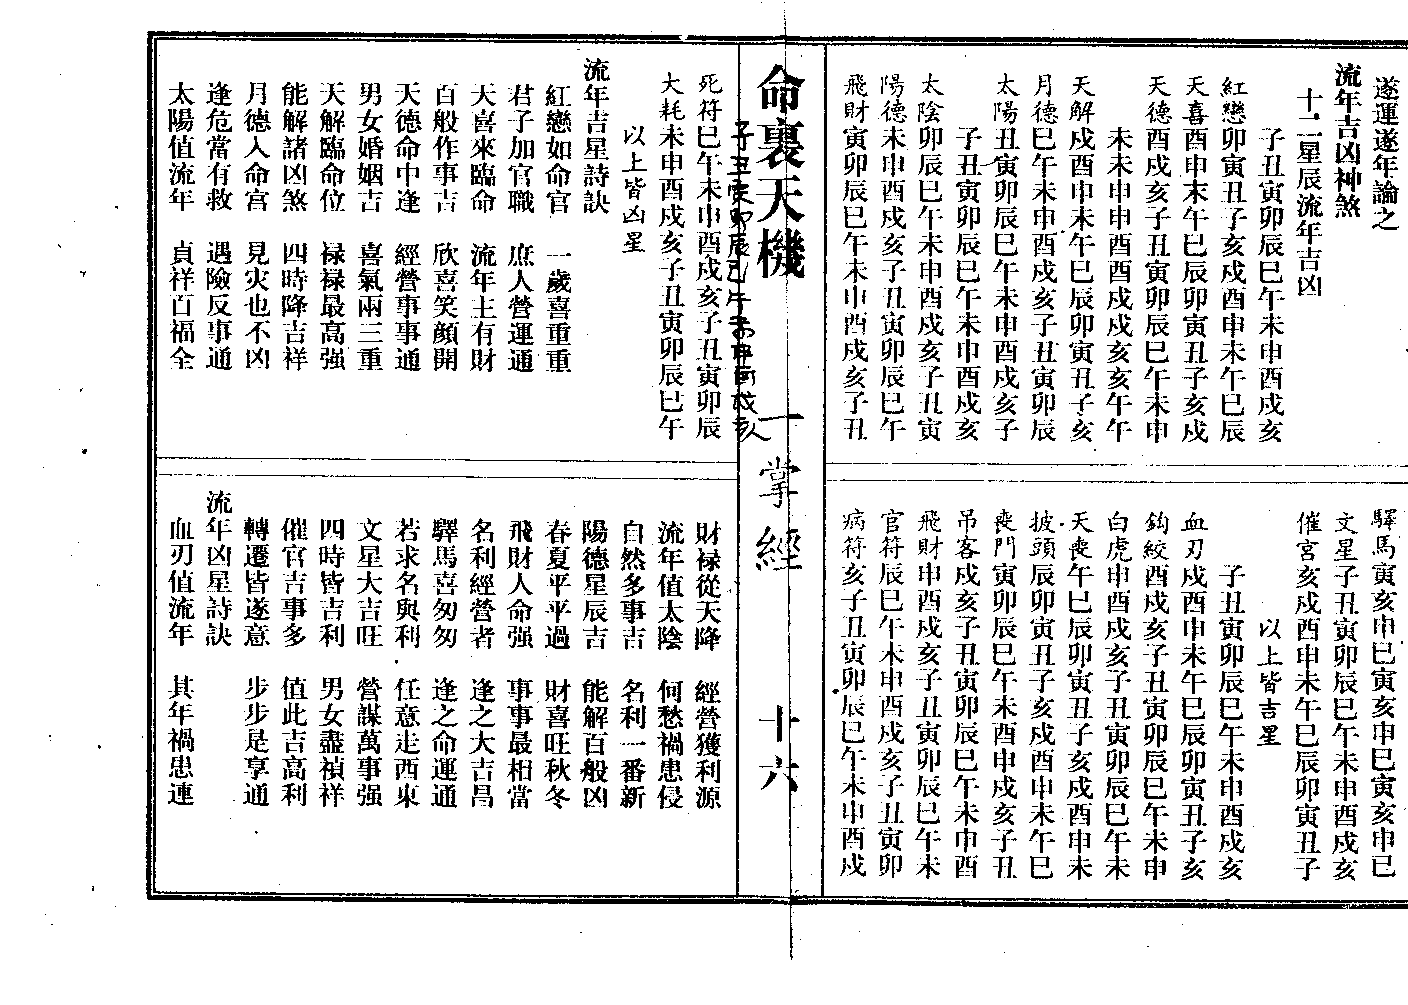 遂運遂年論之
流年吉凶神煞
十二星辰流年吉凶
子丑寅卯辰巳午未申酉戌亥
紅戀卯寅丑子亥戌酉申未午巳辰
天喜酉申未午巳辰卯寅丑子亥戌
天德酉戌亥子丑寅卯辰巳午未申
未未申申酉酉戌戌亥亥午午
天解戌酉申未午巳辰卯寅丑子亥
月德巳午未申酉戌亥子丑寅卯辰
太陽丑寅卯辰巳午未申酉戌亥子
子丑寅卯辰巳午未申酉戌亥
太陰卯辰巳午未申酉戌亥子丑寅
陽德未申酉戌亥子丑寅卯辰巳午
飛財寅卯辰巳午未申酉戌亥子丑
驛馬寅亥申巳寅亥申巳寅亥申巳
文星子丑寅卯辰巳午未申酉戌亥
催宮亥戌酉申未午巳辰卯寅丑子
以上皆吉星
子丑寅卯辰巳午未申酉戌亥
血刃戌酉申未午巳辰卯寅丑子亥
鈎絞酉戌亥子丑寅卯辰巳午未申
白虎申酉戌亥子丑寅卯辰巳午未
天喪午巳辰卯寅丑子亥戌酉申未
披頭辰卯寅丑子亥戌酉申未午巳
喪門寅卯辰巳午未酉申戌亥子丑
吊客戌亥子丑寅卯辰巳午未申酉
飛財申酉戌亥子丑寅卯辰巳午未
官符辰巳午未申酉戌亥子丑寅卯
病符亥子丑寅卯辰巳午未申酉戌
命裏天機 一掌經 十六
子丑寅卯辰巳午未申酉戌亥
死符巳午未申酉戌亥子丑寅卯辰
大耗未申酉戌亥子丑寅卯辰巳午
以上皆凶星
流年吉星詩訣
紅戀如命官 一歲喜重重
君子加官職 庶人營運通
天喜來臨命 流年主有財
百般作事吉 欣喜笑顔開
天德命中逢 經營事事通
男女婚姻吉 喜氣兩三重
天解臨命位 禄禄最高强
能解諸凶煞 四時降吉祥
月德入命宮 見灾也不凶
逢危當有救 遇險反事通
太陽值流年 貞祥百福全
財禄從天降 經營獲利源
流年值太陰 何愁禍患侵
自然多事吉 名利一番新
陽德星辰吉 能解百般凶
春夏平平過 財喜旺秋冬
飛財人命强 事事最相當
名利經營者 逢之大吉昌
驛馬喜匆匆 逢之命運通
若求名與利 任意走西東
文星大吉旺 營謀萬事强
四時皆吉利 男女盡禎祥
催官吉事多 值此吉高利
轉遷皆遂意 步步是享通
流年凶星詩訣
血刃值流年 其年禍患連